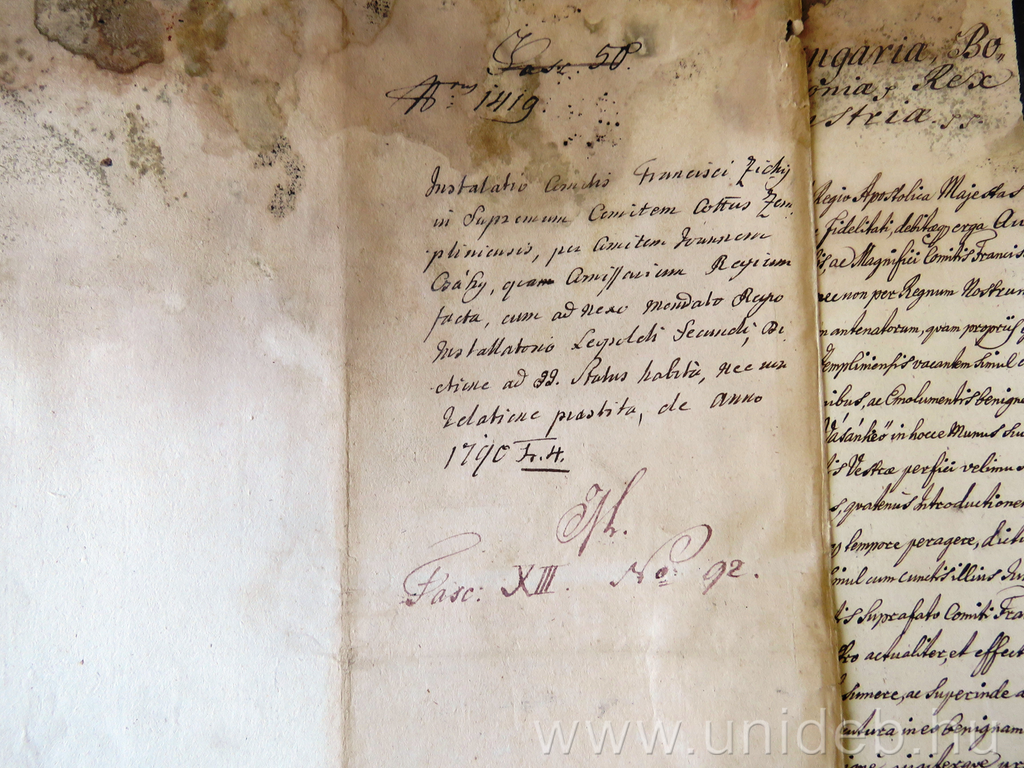 Fasc. 50.
Nrus 1419.
Installatio Comitis Francisci Zichy
in Supremum Comitem Cottus Zem
pliniensis, per Comitem Joannem
Csáky, quam Comissarium Regium
facta, cum adnexo Mandato Regio
Installatorio Leopoldi Secundi, Di
ctione ad SS. Status habita, nec non
Relatione praestita, de Anno
1790 Fr. 4.
Fasc: XIII. No 92.
ngaria, Bo
oniæ, Rex
ustria.
Regio Apostolica Majestas
fidelitati, debitæq erga Au
is, ac Magnifici Comitis Francis
nec non per Regnum Nostrum
m antenatorum, quam propriis
Templiniensis vacantem simul c
nibus, ac Emolumentis benigne
Vásonkeö in hocce Munus su
is Vestræ perfici velimus
s, quatenus introductionem
tempore peragere, dicti
imul cum cunctis illius Ju
is Suprafato Comiti Fra
actualiter, et effect
sumere, ac superinde a
in eo benignam
www.unideb.hu